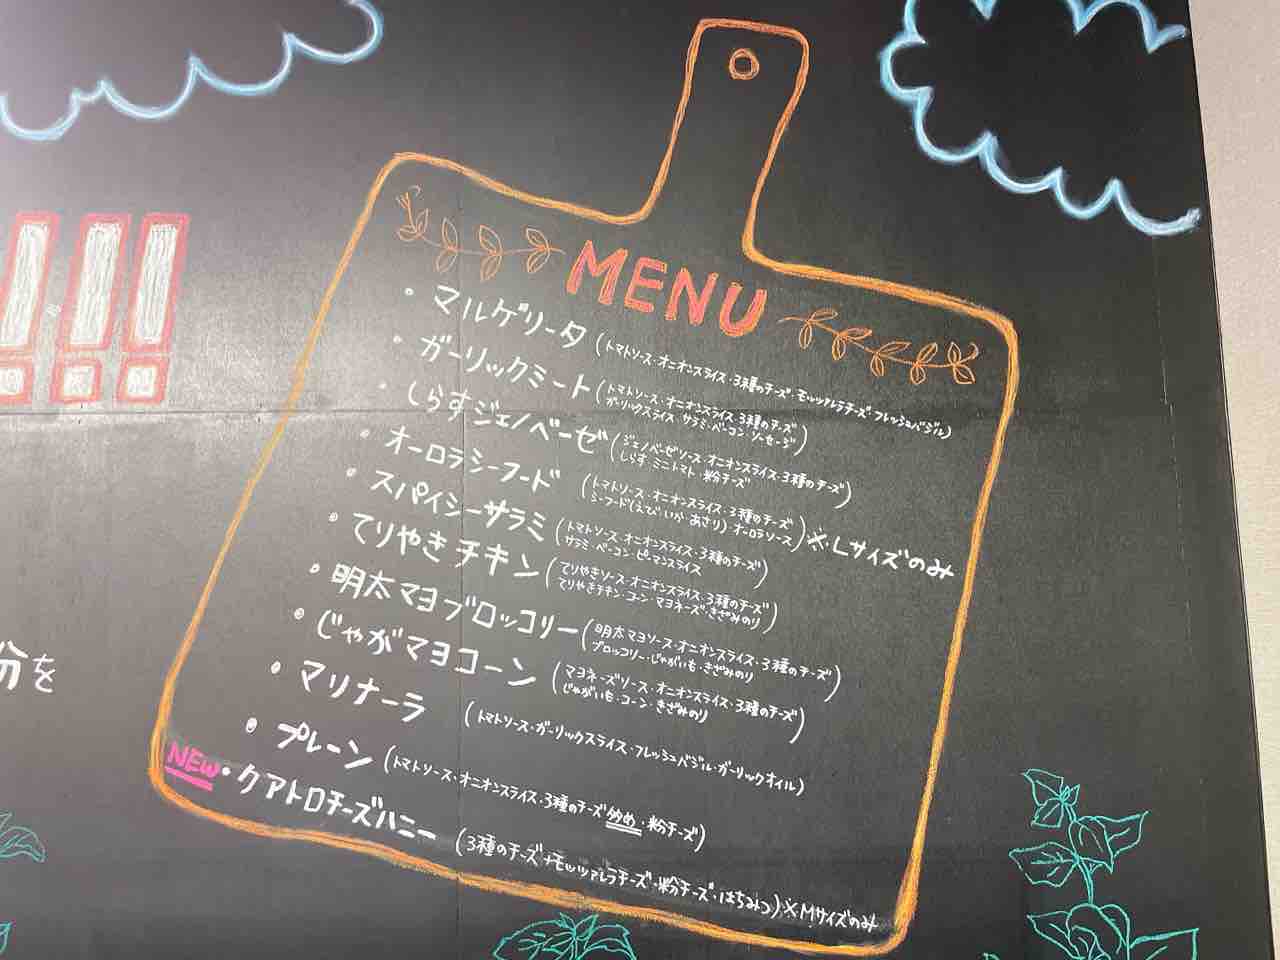 !!!
分を
MENU
・マルゲリータ (トマトソース・オニオンスライス・3種のチーズ・モッツァレラチーズ・フレッシュバジル)
・ガーリックミート (トマトソース・オニオンスライス・3種のチーズ
ガーリックスライス・サラミ・ベーコン・ソーセージ)
・しらすジェノベーゼ (ジェノベーゼソース・オニオンスライス・3種のチーズ
しらす・ミニトマト・粉チーズ)
・オーロラシーフード (トマトソース・オニオンスライス・3種のチーズ
シーフード(えび・いか・あさり) オーロラソース) ※・Lサイズのみ
・スパイシーサラミ (トマトソース・オニオンスライス・3種のチーズ
サラミ・ベーコン・ピーマンスライス)
・てりやきチキン (てりやきソース・オニオンスライス・3種のチーズ
てりやきチキン・コーン・マヨネーズ・きざみのり)
・明太マヨブロッコリー (明太マヨソース・オニオンスライス・3種のチーズ
ブロッコリー・じゃがいも・きざみのり)
・じゃがマヨコーン (マヨネーズソース・オニオンスライス・3種のチーズ
じゃがいも・コーン・きざみのり)
・マリナーラ (トマトソース・ガーリックスライス・フレッシュバジル・ガーリックオイル)
・プレーン (トマトソース・オニオンスライス・3種のチーズ多め・粉チーズ)
NEW・クアトロチーズハニー (3種のチーズ+モッツァレラチーズ・粉チーズ・はちみつ)※Mサイズのみ